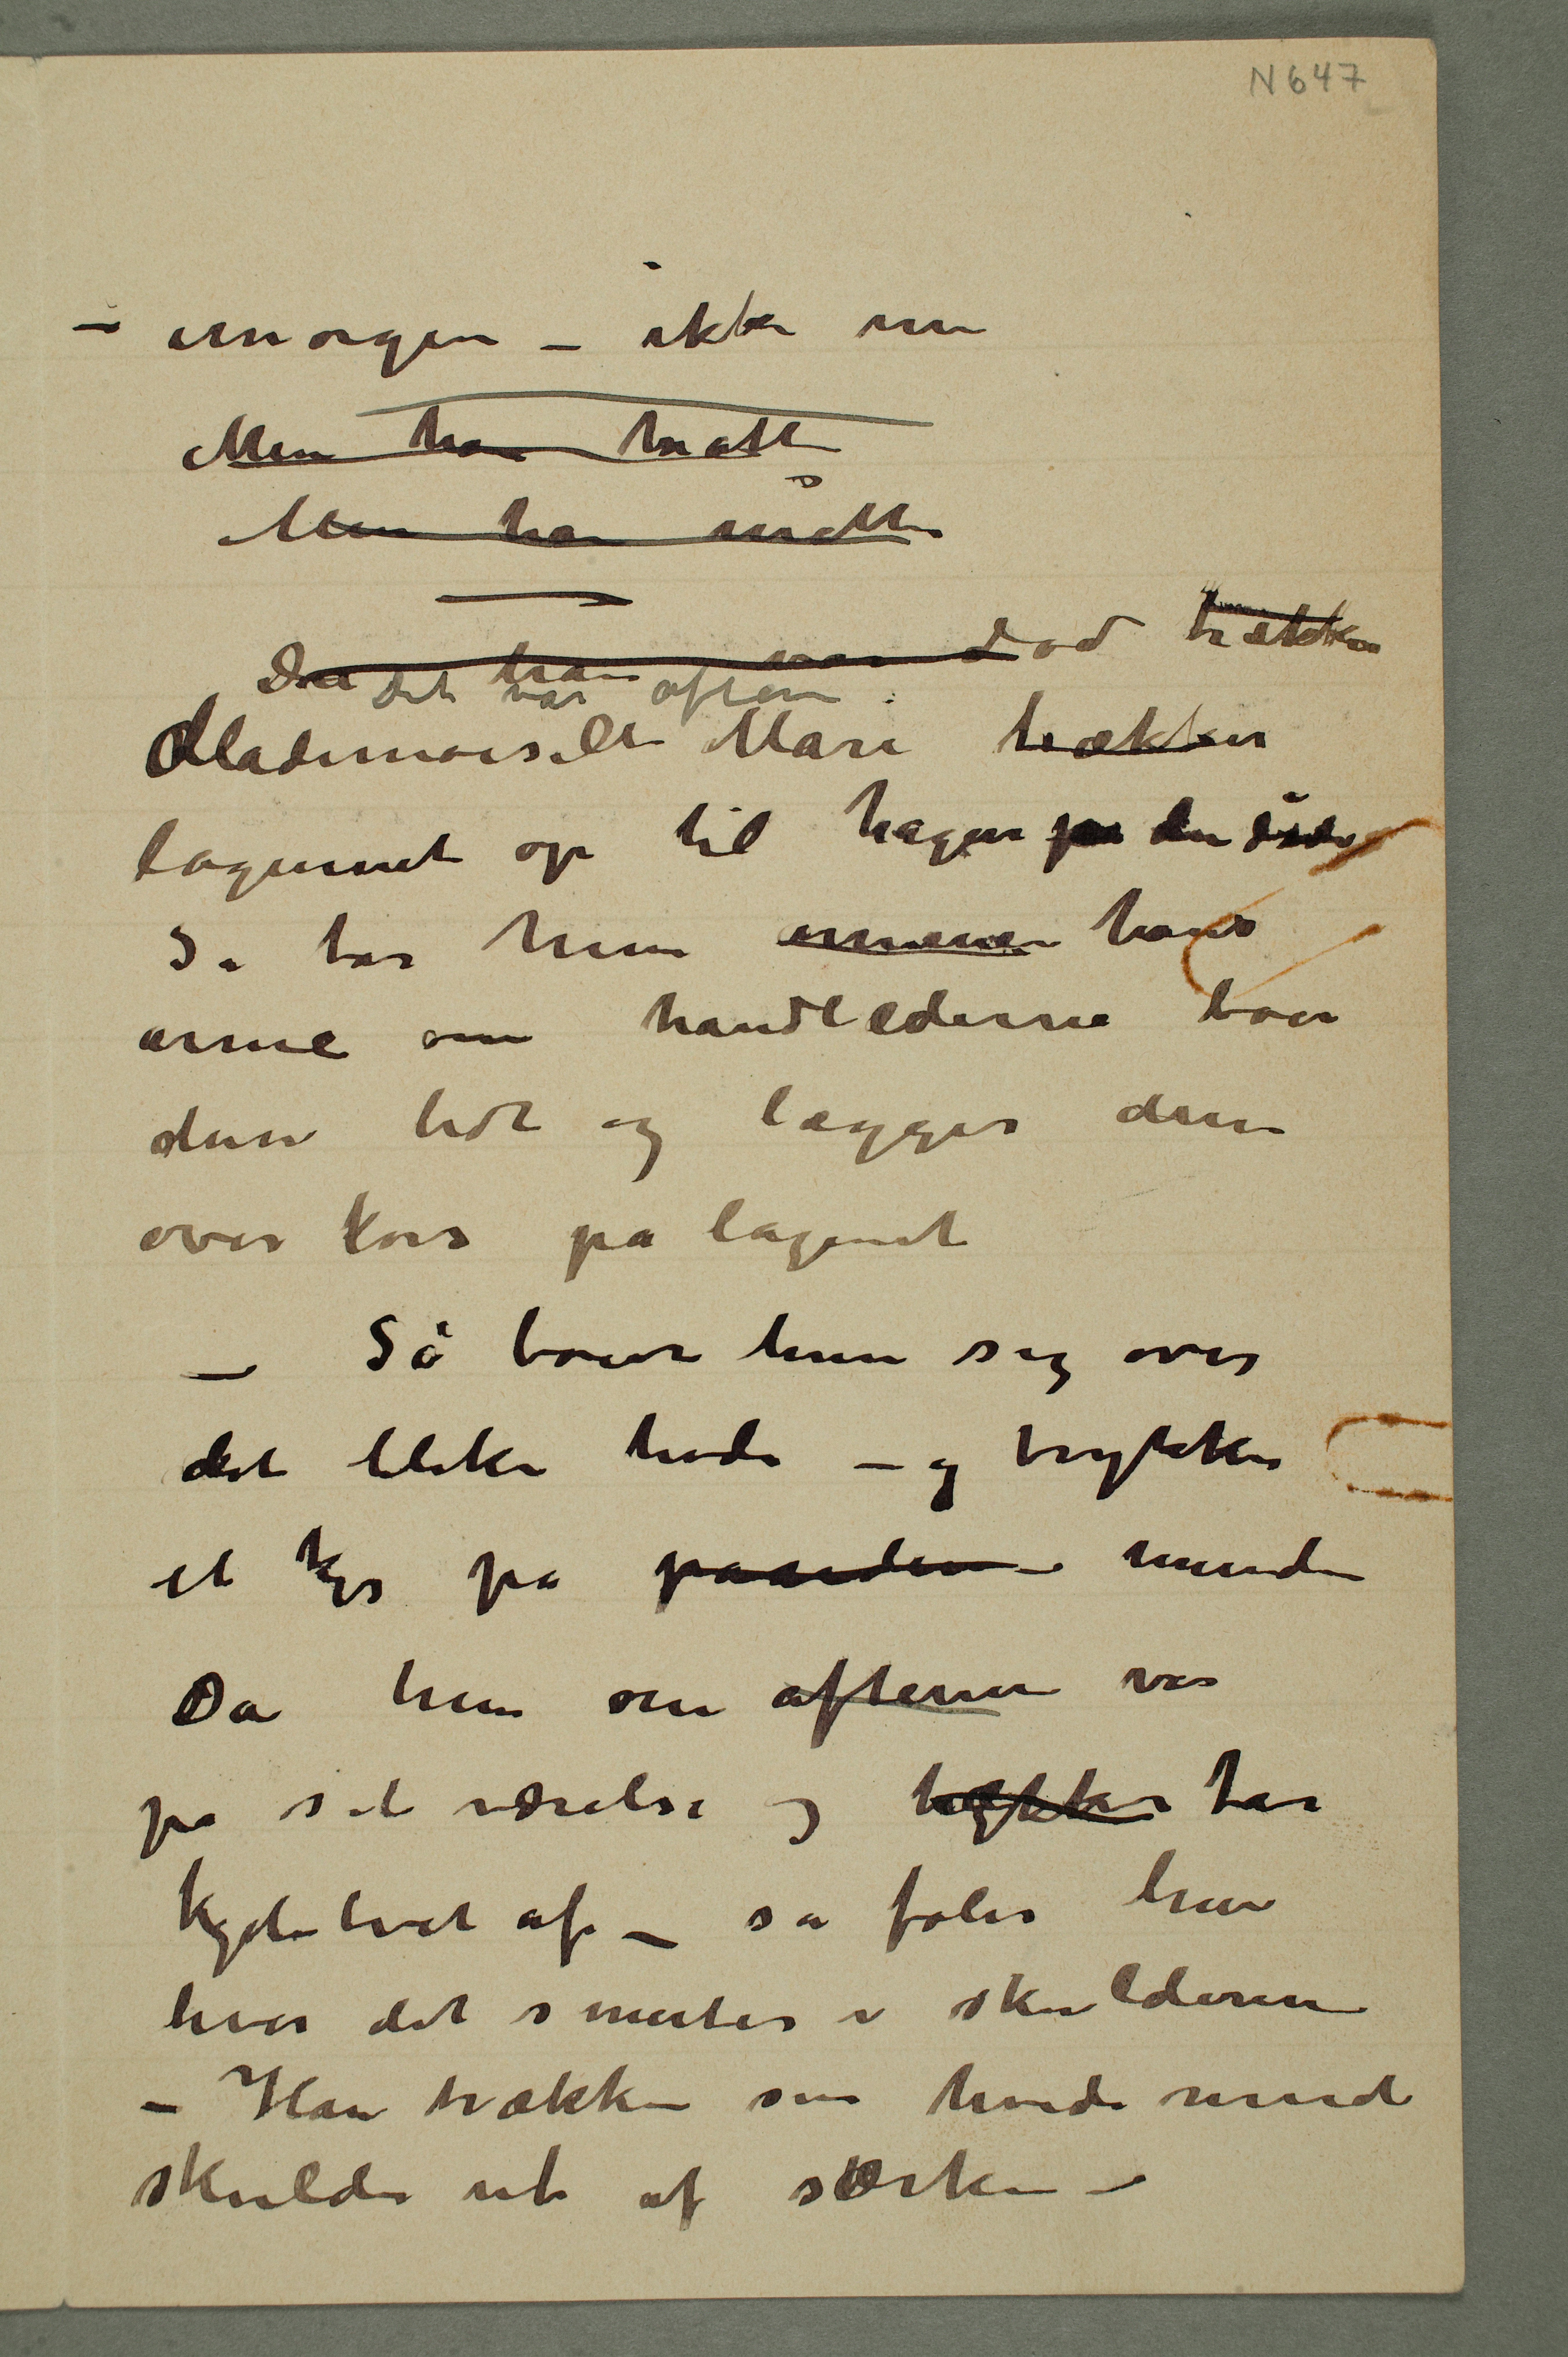 N 647
– imorgen – ikke nu
Men han matte
Men han måtte
Da han var død trækker
Det var aften
Mademoiselle Mari trækker
lagenet op til hagen på den døde
Så tar hun armene hans
arme om handledene boier
dem lidt og lægger dem
over kors på lagenet
– Så boier hun sig over
det bleke hode – og trykker
et kys på panden munden
Da hun om aftenen var
på sit værelse og trækker tar
kjolelivet af – så føler hun
hvor det smerter i skulderen
– Hun trækker sin hvide runde
skulder ut af særken –